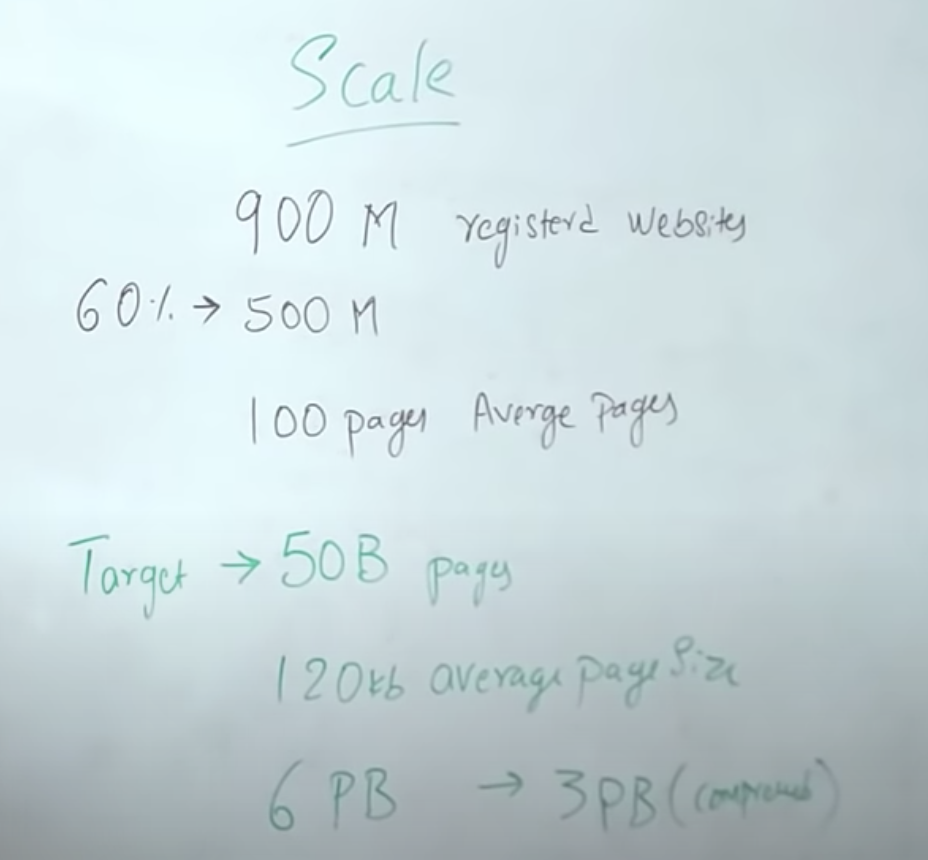 Scale
900 M registerd Websites
60% → 500 M
100 pages Averge Pages
Target → 50B pages
120kb average page Size
6 PB → 3PB (compressed)